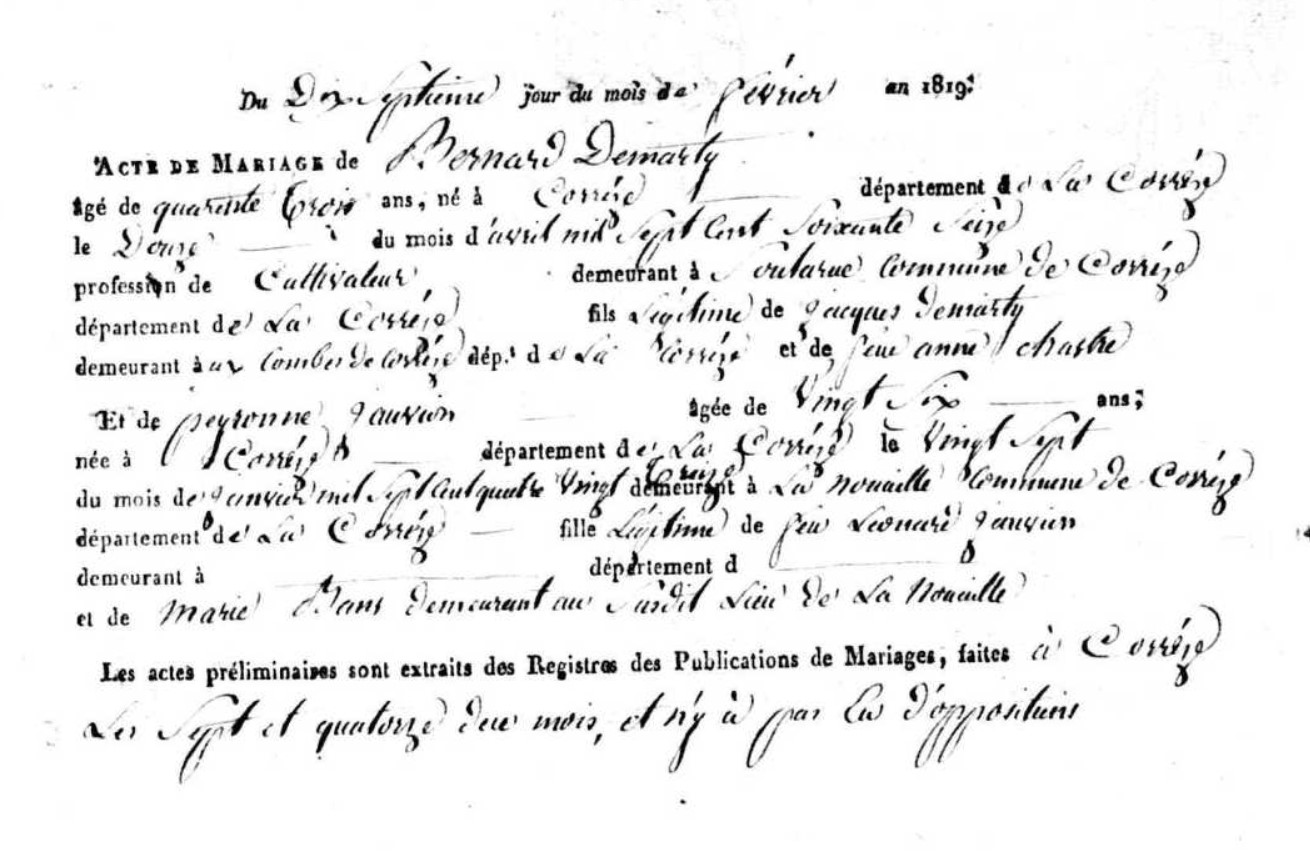 Du Dix Septieme jour du mois de février an 1819.
ACTE DE MARIAGE de Bernard Demarty
âgé de quarente trois ans, né à Corrèze département de La Corrèze
le Douze du mois d'avril mil Sept Cent Soixante Seize
profession de Cultivateur demeurant à Soularue Commune de Corrèze
département de La Corrèze fils Légitime de Jacques Demarty
demeurant aux Combes de Corrèze dép.t de La Corrèze et de feue anne chastre
Et de peyronne Janvion âgée de Vingt Six ans;
née à Corrèze département de La Corrèze le Vingt Sept
du mois de Janvier mil Sept Cent quatre Vingt treize demeurant à La nouaille Commune de Corrèze
département de La Corrèze fille Légitime de feu Leonard Janvion
demeurant à département d
et de Marie Bans demeurant au Susdit Lieu de La Nouaille
Les actes préliminaires sont extraits des Registres des Publications de Mariages, faites à Corrèze
Les Sept et quatorze du mois, et n'y à pas Eu d'oppositions